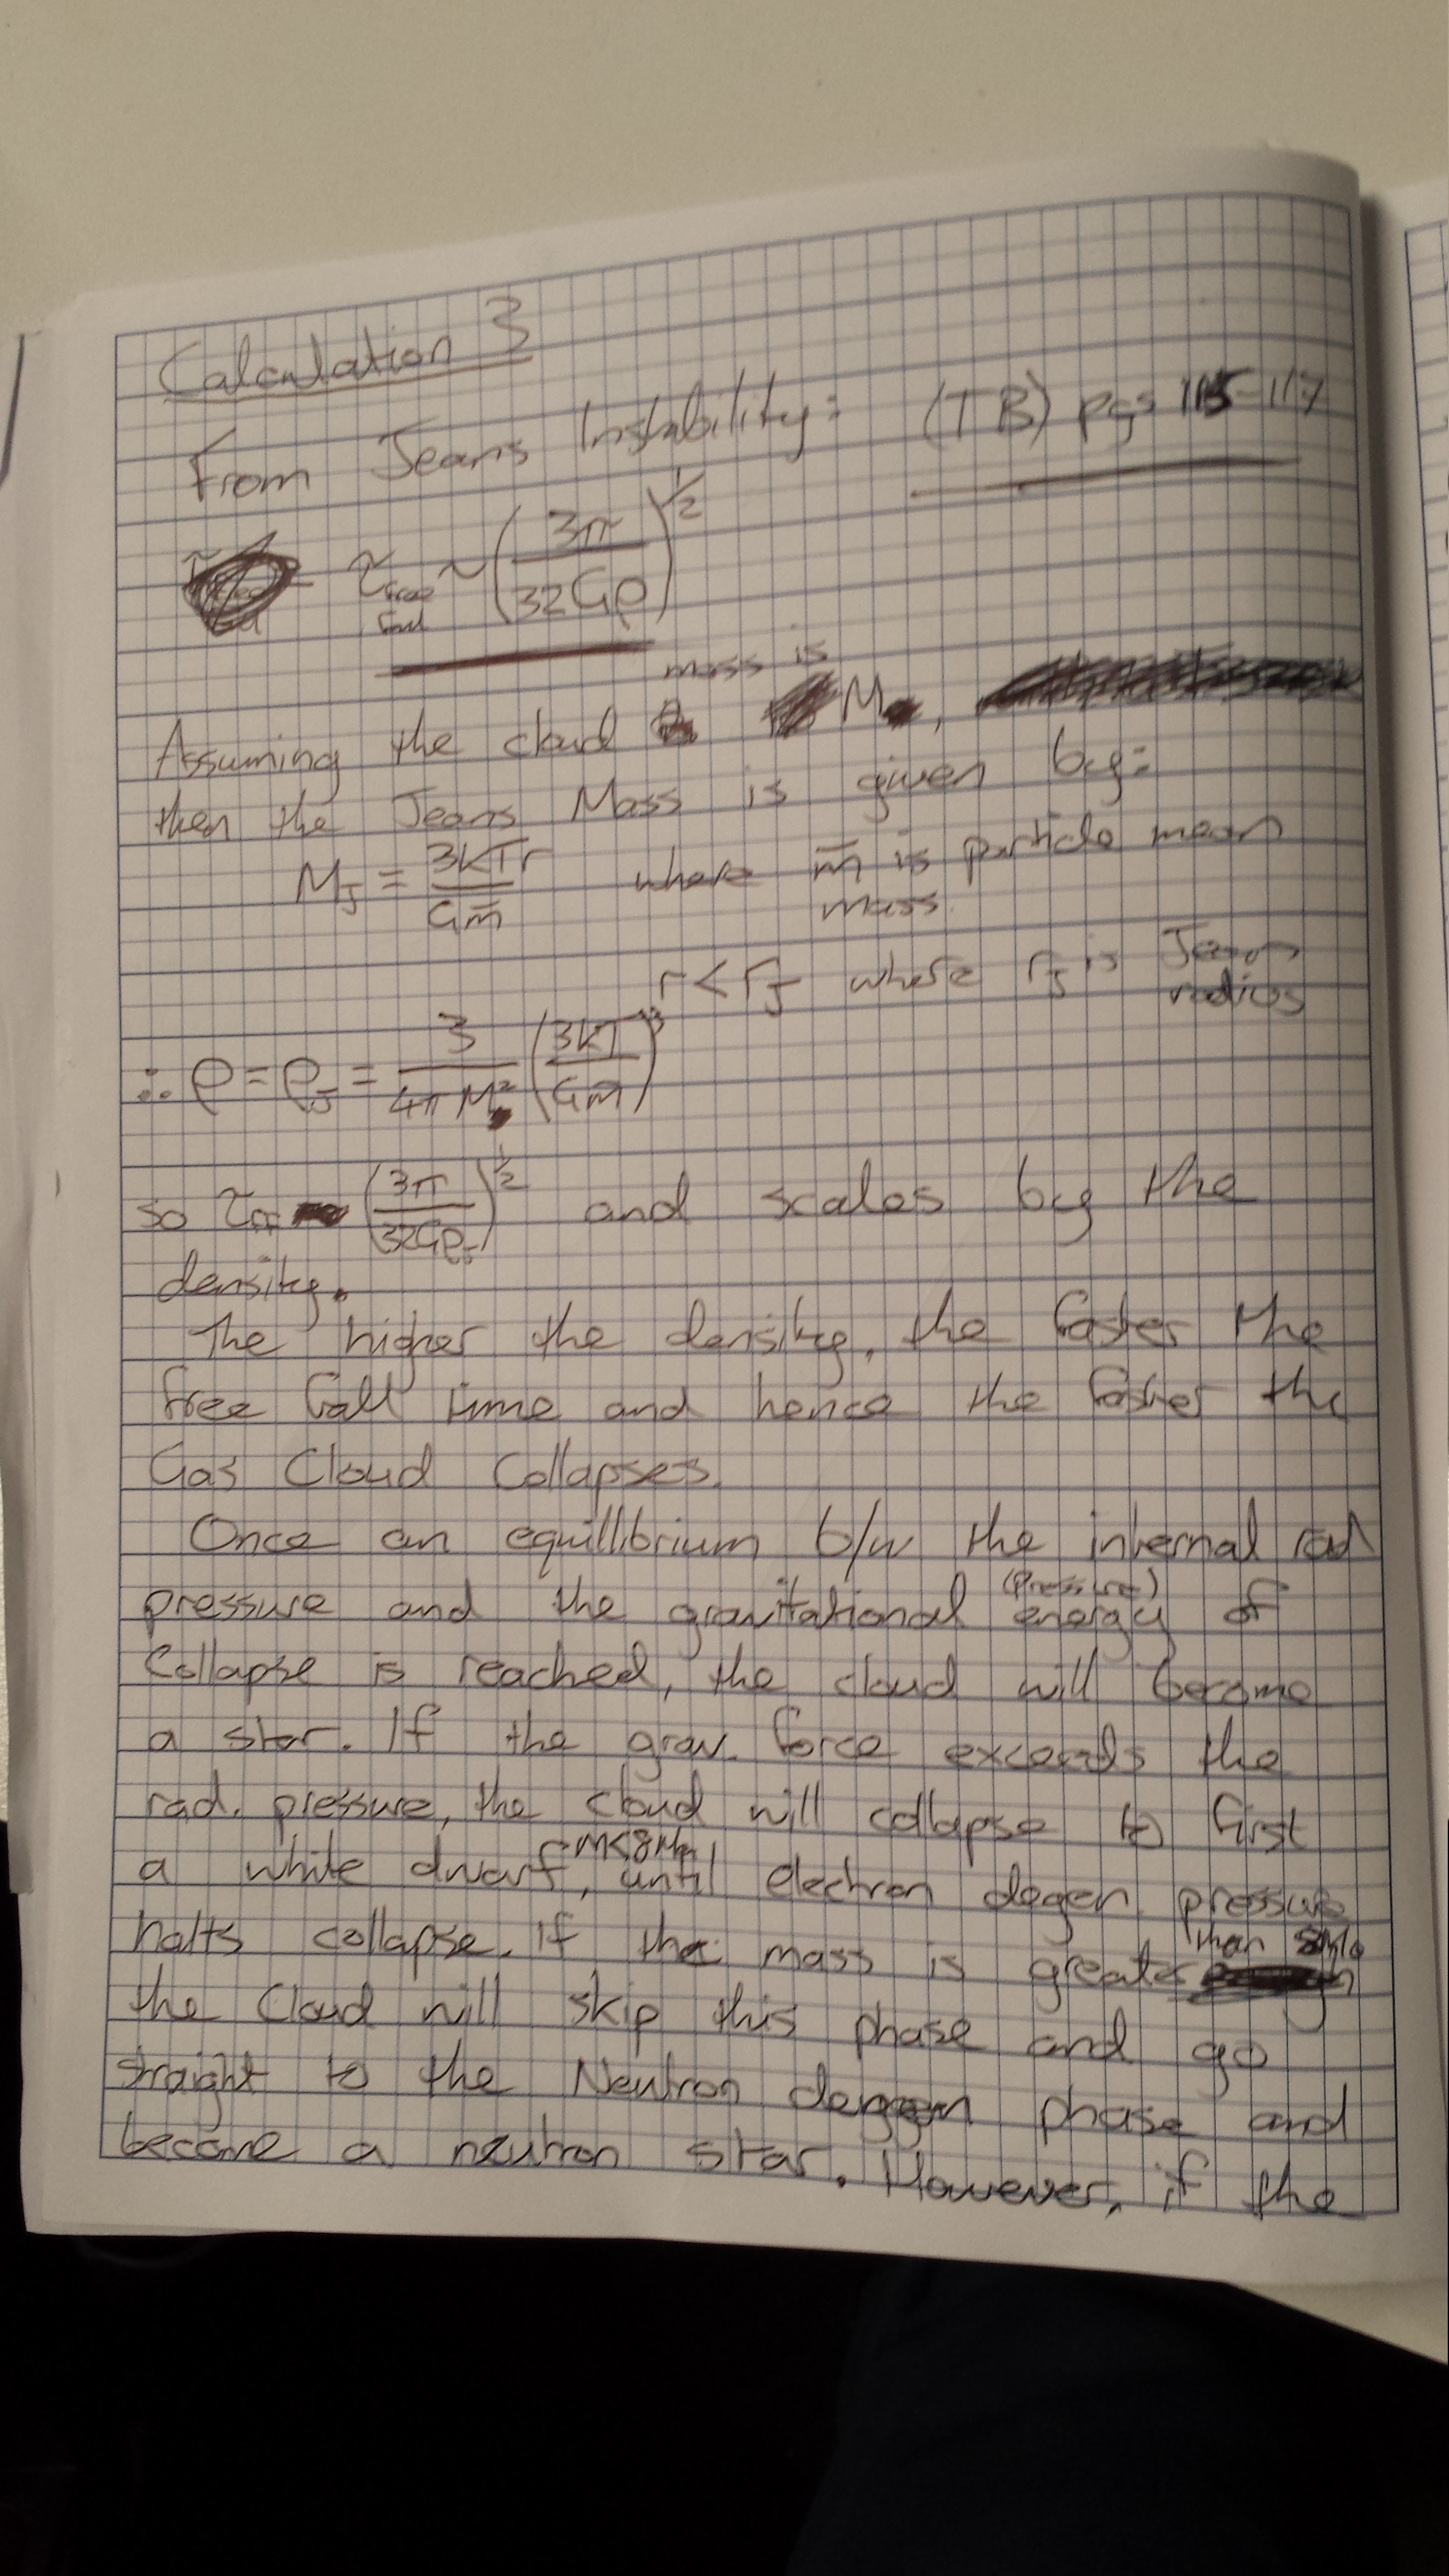 Calculation 3
From Jeans Instability: (TB) Pgs 115-117
τ_free fall ~ (3π / 32Gρ)^½
Assuming the cloud mass is M,
then the Jeans Mass is given by:
M_J = 3kTr / Gm̄ where m̄ is particle mean mass
r < r_J where r_J is Jean radius
∴ ρ = ρ_J = 3 / 4πM² (3kT / Gm̄)³
so τ_ff (3π / 32Gρ_J)^½ and scales by the
density.
The higher the density, the faster the
free fall time and hence the faster the
Gas Cloud Collapses.
Once an equillibrium b/w the internal rad
pressure and the gravitational energy (Pressure) of
Collapse is reached, the cloud will become
a star. If the grav. force exceeds the
rad. pressure, the cloud will collapse to first
a white dwarf, until electron degen pressure
halts collapse. If the mass is greater than
the cloud will skip this phase and go
straight to the Neutron degen phase and
become a neutron star. However, if the